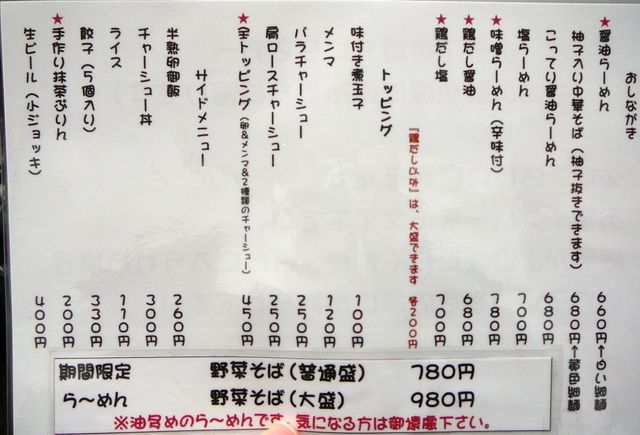 おしながき
★醤油らーめん 660円→白い細麺
柚子入り中華そば(柚子抜きできます) 680円→黄色細麺
こってり醤油らーめん 680円
塩らーめん 700円
★味噌らーめん(辛味付) 780円
★鶏だし醤油 680円
★鶏だし塩 700円
『鶏だし以外』は、大盛できます 各200円
トッピング
味付き煮玉子 100円
メンマ 120円
バラチャーシュー 250円
肩ロースチャーシュー 250円
★全トッピング(卵&メンマ&2種類のチャーシュー) 450円
サイドメニュー
半熟卵御飯 260円
チャーシュー丼 300円
ライス 110円
餃子(5個入り) 330円
★手作り抹茶ぷりん 200円
生ビール(小ジョッキ) 400円
期間限定 野菜そば(普通盛) 780円
ら〜めん 野菜そば(大盛) 980円
※油多めのら〜めんです、気になる方は御遠慮下さい。